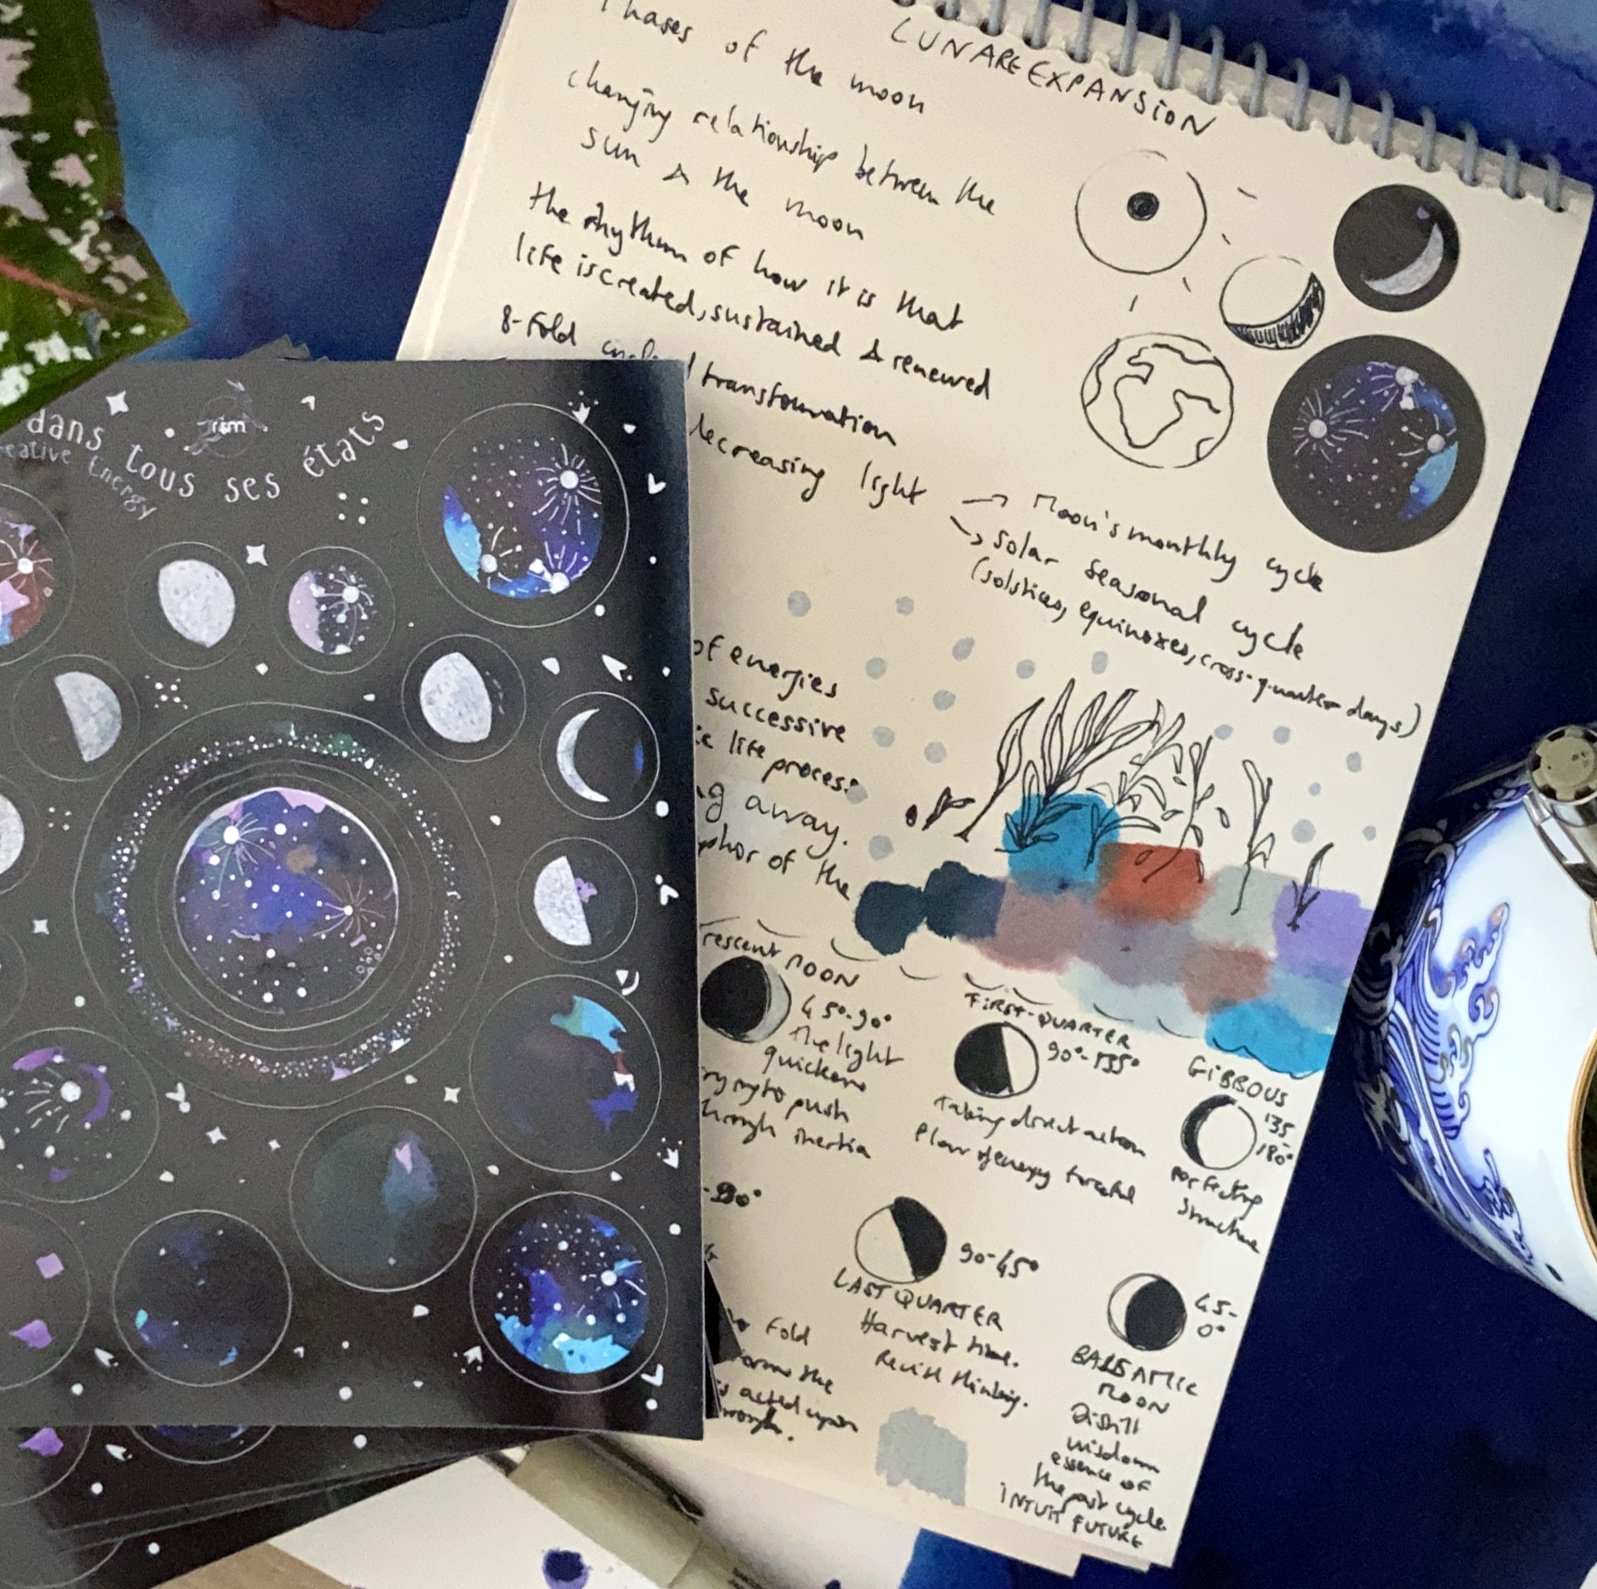 LUNAR EXPANSION
Phases of the moon
changing relationship between the
sun & the moon
the rhythm of how it is that
life is created, sustained & renewed
8-Fold
transformation
decreasing light → Moon's monthly cycle
→ Solar Seasonal cycle
(solstices, equinoxes, cross-quarter days)
of energies
successive
life process
away.
of the
MOON
45°-90°
The light
quickens
to push
through inertia
FIRST-QUARTER
90°-135°
Taking direct action
Flow of energy forceful
GIBBOUS
135-
180°
Perfecting
structure
-90°
90-45°
LAST QUARTER
Harvest time.
Revise thinking.
45-
0°
BALSAMIC
MOON
Distill
wisdom
essence of
the past cycle.
INTUIT FUTURE
Fold
the
acted upon
through.
dans tous ses états
Creative Energy
rim